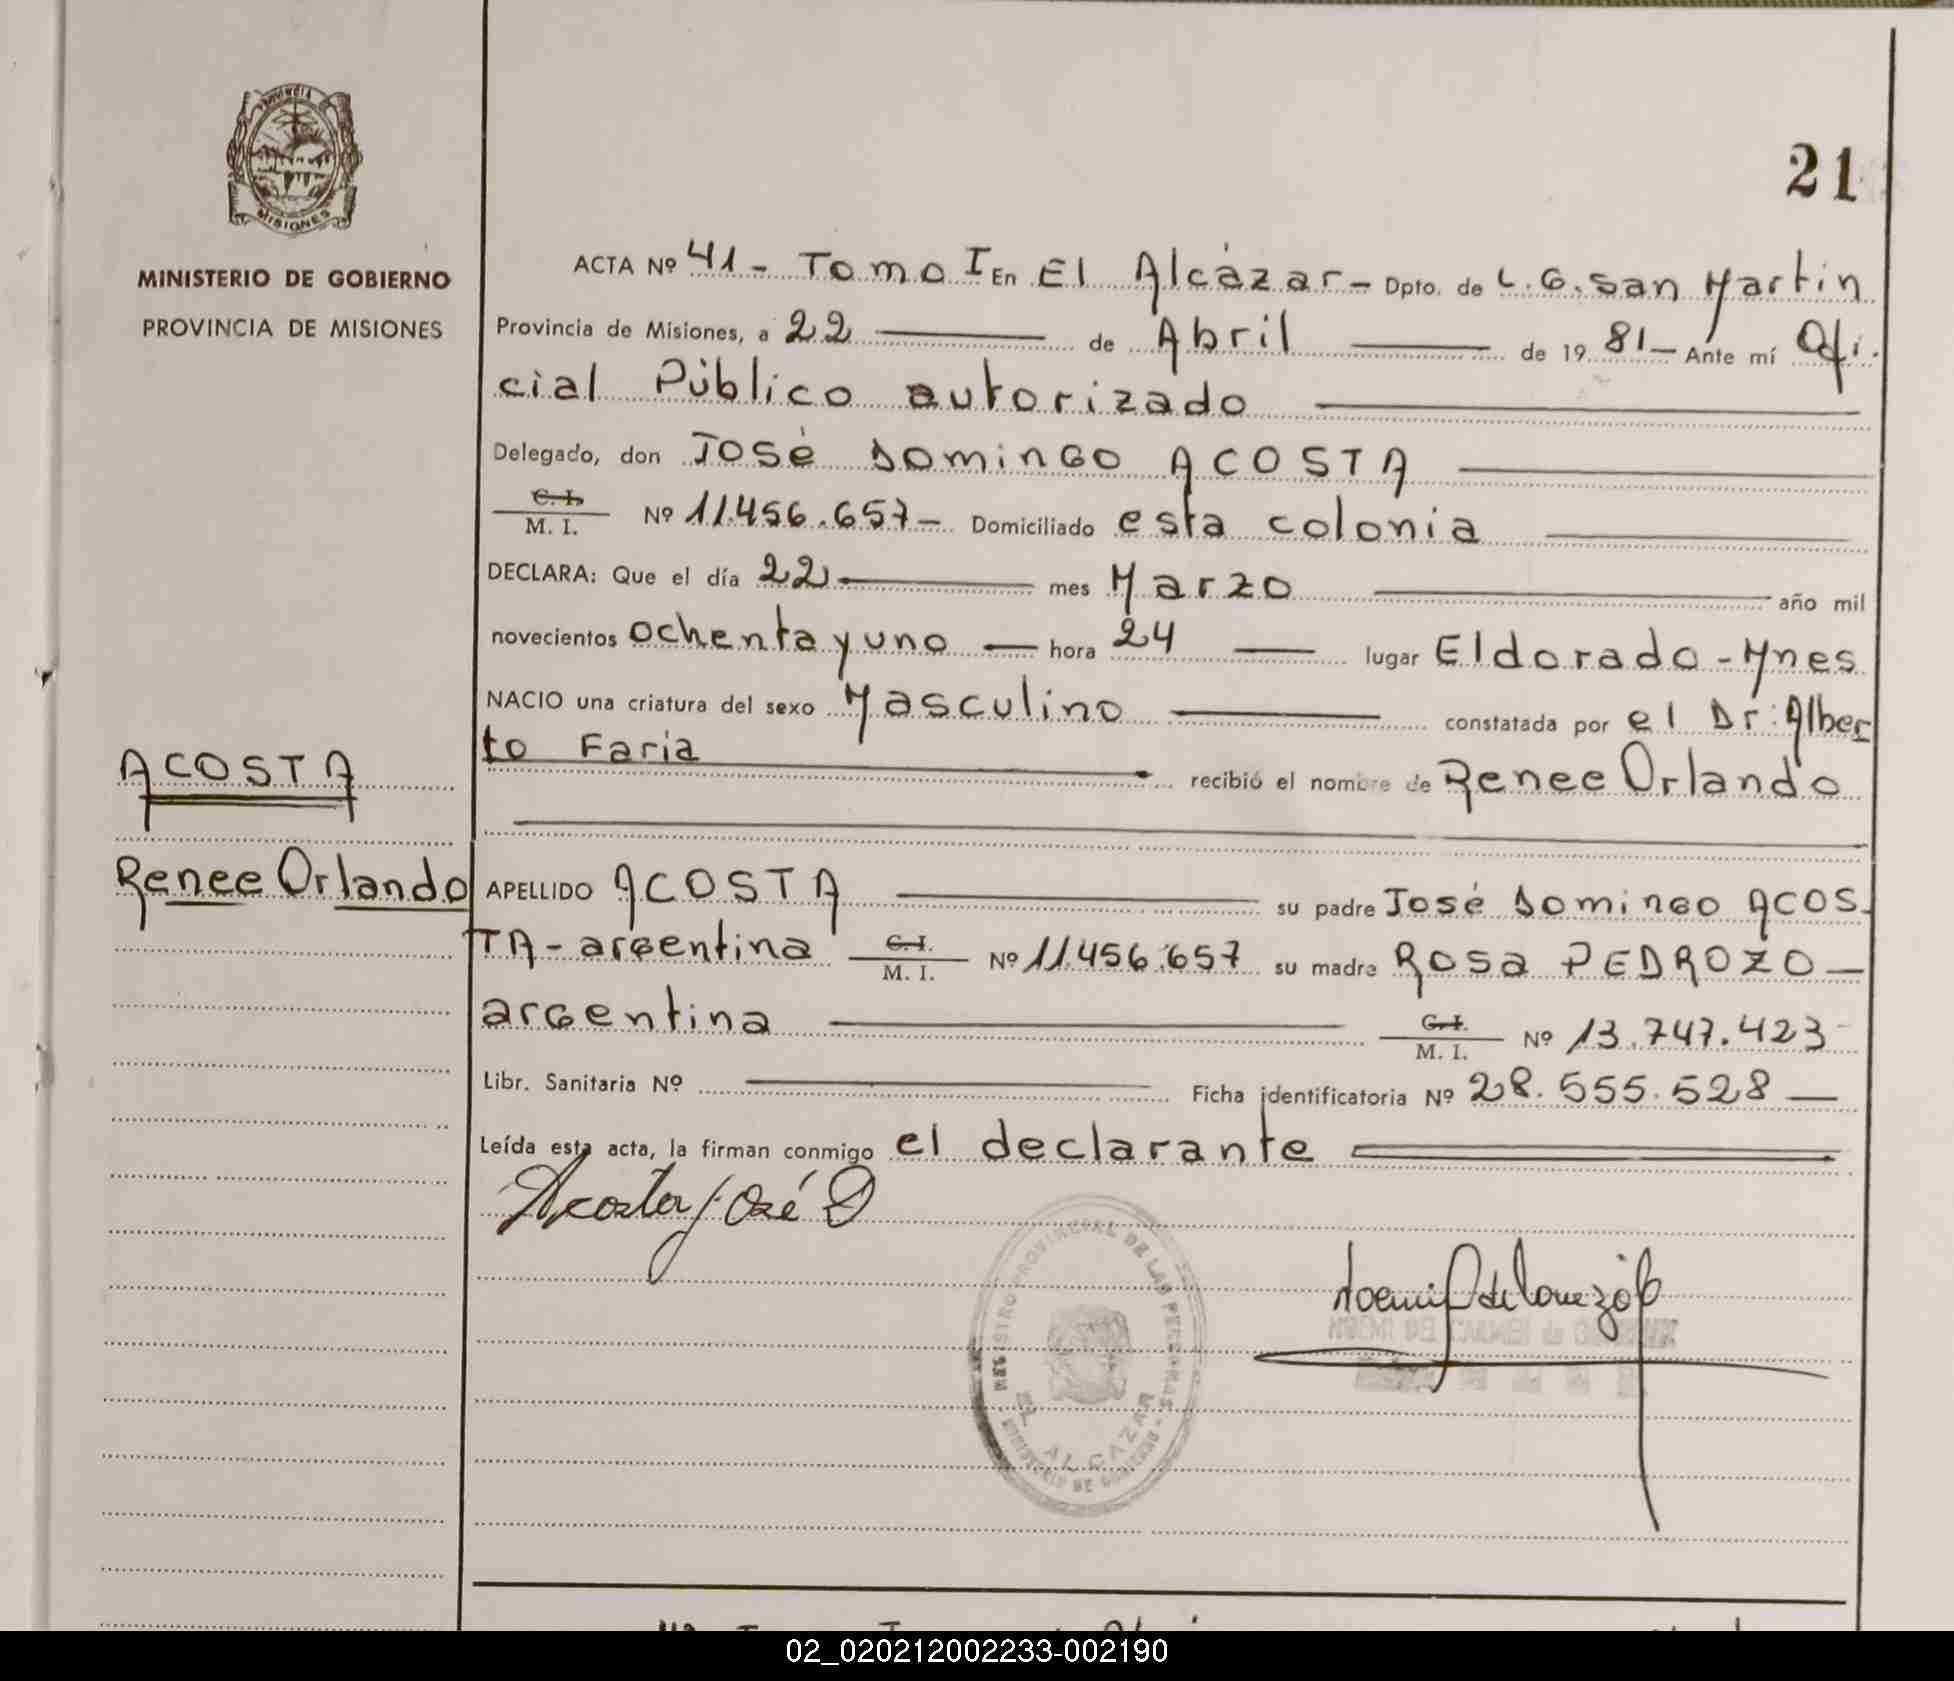 PROVINCIA
MISIONES
MINISTERIO DE GOBIERNO
PROVINCIA DE MISIONES
21
ACTA Nº 41 - Tomo I En El Alcázar - Dpto. de L.G. San Martin
Provincia de Misiones, a 22 de Abril de 19 81 - Ante mí Ofi.
cial Público autorizado
Delegado, don José Domingo ACOSTA
C. I.
M. I. Nº 11.456.657 - Domiciliado esta colonia
DECLARA: Que el día 22 mes Marzo año mil
novecientos ochenta y uno hora 24 lugar Eldorado - Mnes
NACIO una criatura del sexo Masculino constatada por el Dr. Alber
to Faria recibió el nombre de Renee Orlando
ACOSTA
Renee Orlando
APELLIDO ACOSTA su padre José Domingo ACOS
TA - argentina C. I. M. I. Nº 11.456.657 su madre Rosa PEDROZO -
argentina C. I. M. I. Nº 13.747.423
Libr. Sanitaria Nº Ficha identificatoria Nº 28.555.528
Leída esta acta, la firman conmigo el declarante
Acosta José D
REGISTRO PROVINCIAL DE LAS PERSONAS
EL ALCAZAR
MINISTERIO DE GOBIERNO
02_020212002233-002190